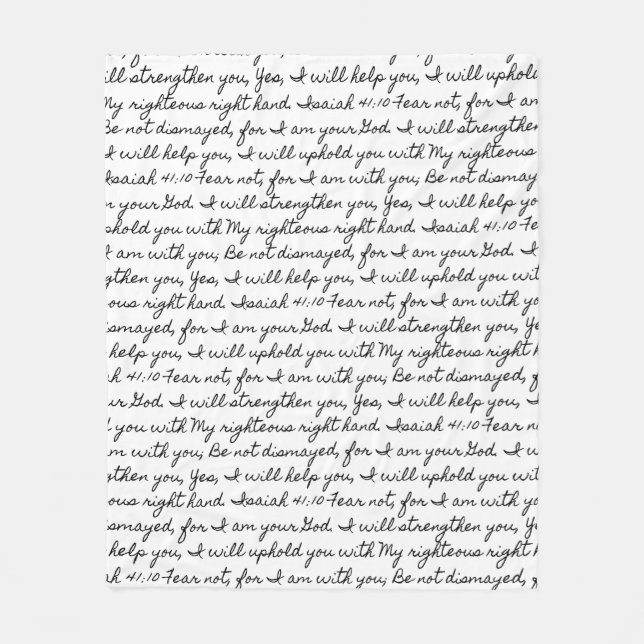 ill strengthen you, Yes, I will help you, I will uphol
My righteous right hand. Isaiah 41:10 Fear not, for I am
Be not dismayed, for I am your God. I will strengthen
I will help you, I will uphold you with My righteous
Isaiah 41:10 Fear not, for I am with you; Be not dismayed,
m your God. I will strengthen you, Yes, I will help you
uphold you with My righteous right hand. Isaiah 41:10 Fe
I am with you; Be not dismayed, for I am your God. I
gthen you, Yes, I will help you, I will uphold you with
ous right hand. Isaiah 41:10 Fear not, for I am with yo
ismayed, for I am your God. I will strengthen you, Ye
help you, I will uphold you with My righteous right h
h 41:10 Fear not, for I am with you; Be not dismayed, f
ur God. I will strengthen you, Yes, I will help you, I
d you with My righteous right hand. Isaiah 41:10 Fear no
m with you; Be not dismayed, for I am your God. I
gthen you, Yes, I will help you, I will uphold you wit
ous right hand. Isaiah 41:10 Fear not, for I am with yo
ismayed, for I am your God. I will strengthen you, Ye
help you, I will uphold you with My righteous right h
ah 41:10 Fear not, for I am with you; Be not dismayed, f